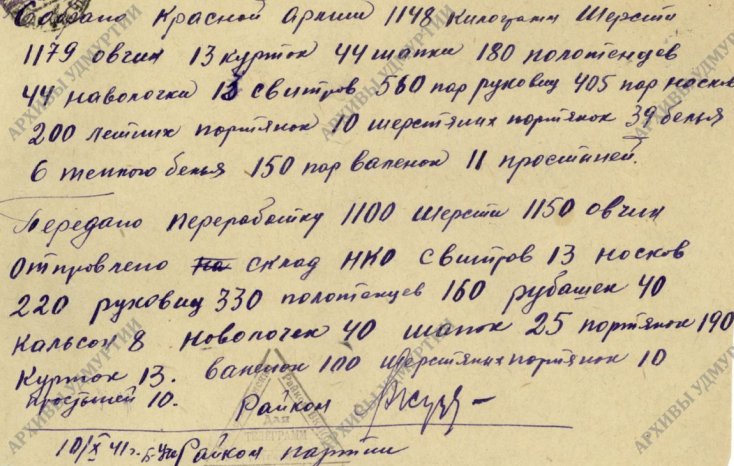 Собрано Красной Армии 1148 килограмм шерсти
1179 овчин 13 курток 44 шапки 180 полотенцев
44 наволочки 13 свитров 560 пар рукавиц 405 пар носков
200 летних портянок 10 шерстяних портянок 39 белья
6 теплого белья 150 пар валенок 11 простиней.
Передано переработку 1100 шерсти 1150 овчин
Отправлено на склад НКО свитров 13 носков
220 рукавиц 330 полотенцев 160 рубашек 40
Кальсон 8 новолочек 40 шапок 25 портянок 190
Курток 13. валенок 100 шерстяних портянок 10
простыней 10. Райком
10/X 41г. Райком партии
АРХИВЫ УДМУРТИИ
ДЛЯ
ТЕЛЕГРАММ